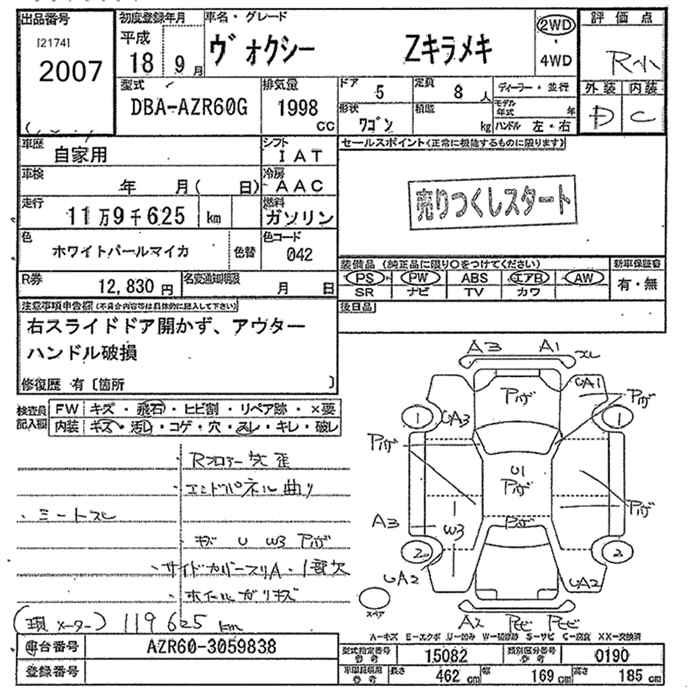 出品番号 初度登録年月 車名・グレード 評価点
[2174] 2007 平成 18 9月 ヴォクシー Zキラメキ 2WD ・ 4WD R小
型式 排気量 ドア 5 定員 8人 ディーラー・並行 外装 内装
DBA-AZR60G 1998 CC 形状 ワゴン 積載 kg モデル年式 年 ハンドル 左・右 D C
車歴 自家用 シフト IAT セールスポイント(正常に機能するものに限ります)
車検 年 月( 日) 冷房 AAC
売りつくしスタート
走行 11万9千625 km 燃料 ガソリン
色 ホワイトパールマイカ 色替 色コード 042
装備品(純正品に限り○をつけてください) 新車保証書
PS PW ABS エアB AW 有・無
SR ナビ TV カワ
R券 12,830円 名変通知期限 月 日
後日品
注意事項申告欄(不具合内容等は具体的に記入して下さい)
右スライドドア開かず、アウター
ハンドル破損
修復歴 有〔箇所 〕
検査員記入欄 FW キズ・飛石・ヒビ割・リペア跡・×要
内装 キズ・汚レ・コゲ・穴・スレ・キレ・破レ
A3 A1
UA1
UA3
1 1
U1
A3 W3
2 2
UA2 UA2
スペア
A2
・Rフロアー突歪
・エンドパネル曲り
・シートスレ
・キズ U W3 アリ
・サイドカバースリA・1部欠
・ホイールガリキズ
(現メーター) 119625km
A-キズ E-エクボ U-凹み W-補修跡 S-サビ C-腐食 XX-交換済
車台番号 AZR60-3059838
型式指定番号 参考 15082 類別区分番号 参考 0190
登録番号
車両諸元寸法 参考 長さ 462 cm 幅 169 cm 高さ 185 cm